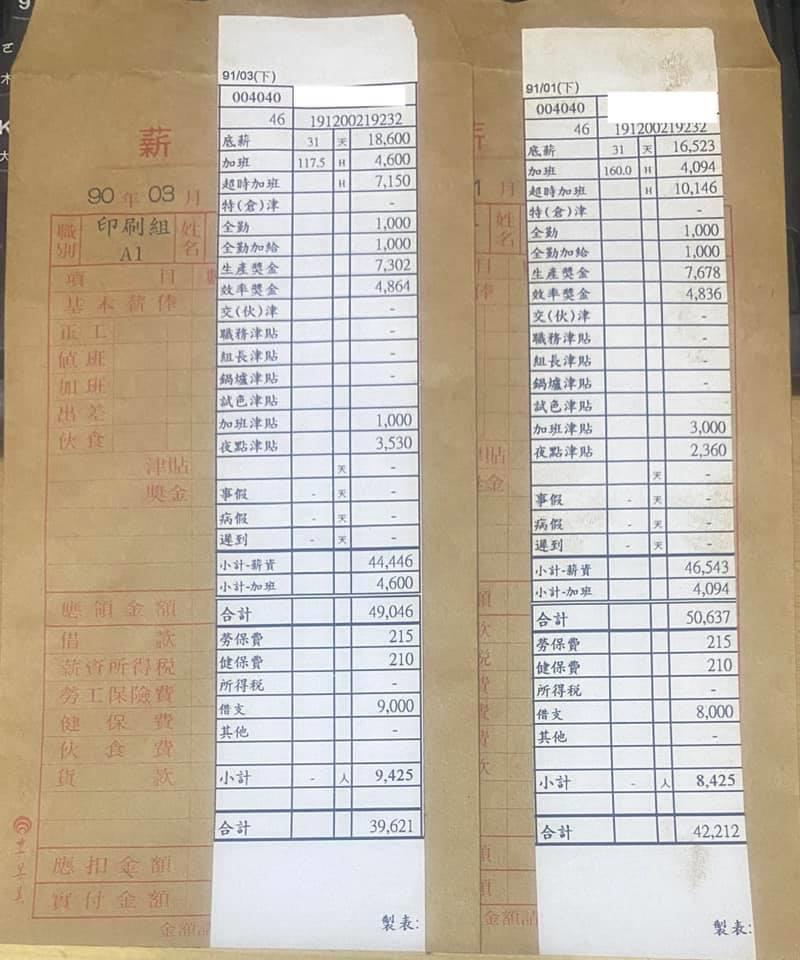 薪
90 年 03 月
職別
印刷組
A1
姓名
項 目
基本薪俸
正工
值班
加班
出差
伙食
津貼
獎金
應領金額
借 款
薪資所得稅
勞工保險費
健保費
伙食費
貨款
應扣金額
實付金額
金額請
91/03(下)
004040
46 191200219232
底薪 31 天 18,600
加班 117.5 H 4,600
超時加班 H 7,150
特(倉)津 -
全勤 1,000
全勤加給 1,000
生產獎金 7,302
效率獎金 4,864
交(伙)津 -
職務津貼 -
組長津貼 -
鍋爐津貼 -
試色津貼 -
加班津貼 1,000
夜點津貼 3,530
天 -
事假 - 天 -
病假 - 天 -
遲到 - 天 -
小計-薪資 44,446
小計-加班 4,600
合計 49,046
勞保費 215
健保費 210
所得稅 -
借支 9,000
其他 -
小計 - 人 9,425
合計 39,621
製表:
月
姓名
目
俸
貼
金
額
款
稅
費
費
費
款
額
額
金額請
91/01(下)
004040
46 191200219232
底薪 31 天 16,523
加班 160.0 H 4,094
超時加班 H 10,146
特(倉)津 -
全勤 1,000
全勤加給 1,000
生產獎金 7,678
效率獎金 4,836
交(伙)津 -
職務津貼 -
組長津貼 -
鍋爐津貼 -
試色津貼 -
加班津貼 3,000
夜點津貼 2,360
天 -
事假 - 天 -
病假 - 天 -
遲到 - 天 -
小計-薪資 46,543
小計-加班 4,094
合計 50,637
勞保費 215
健保費 210
所得稅 -
借支 8,000
其他 -
小計 - 人 8,425
合計 42,212
製表: